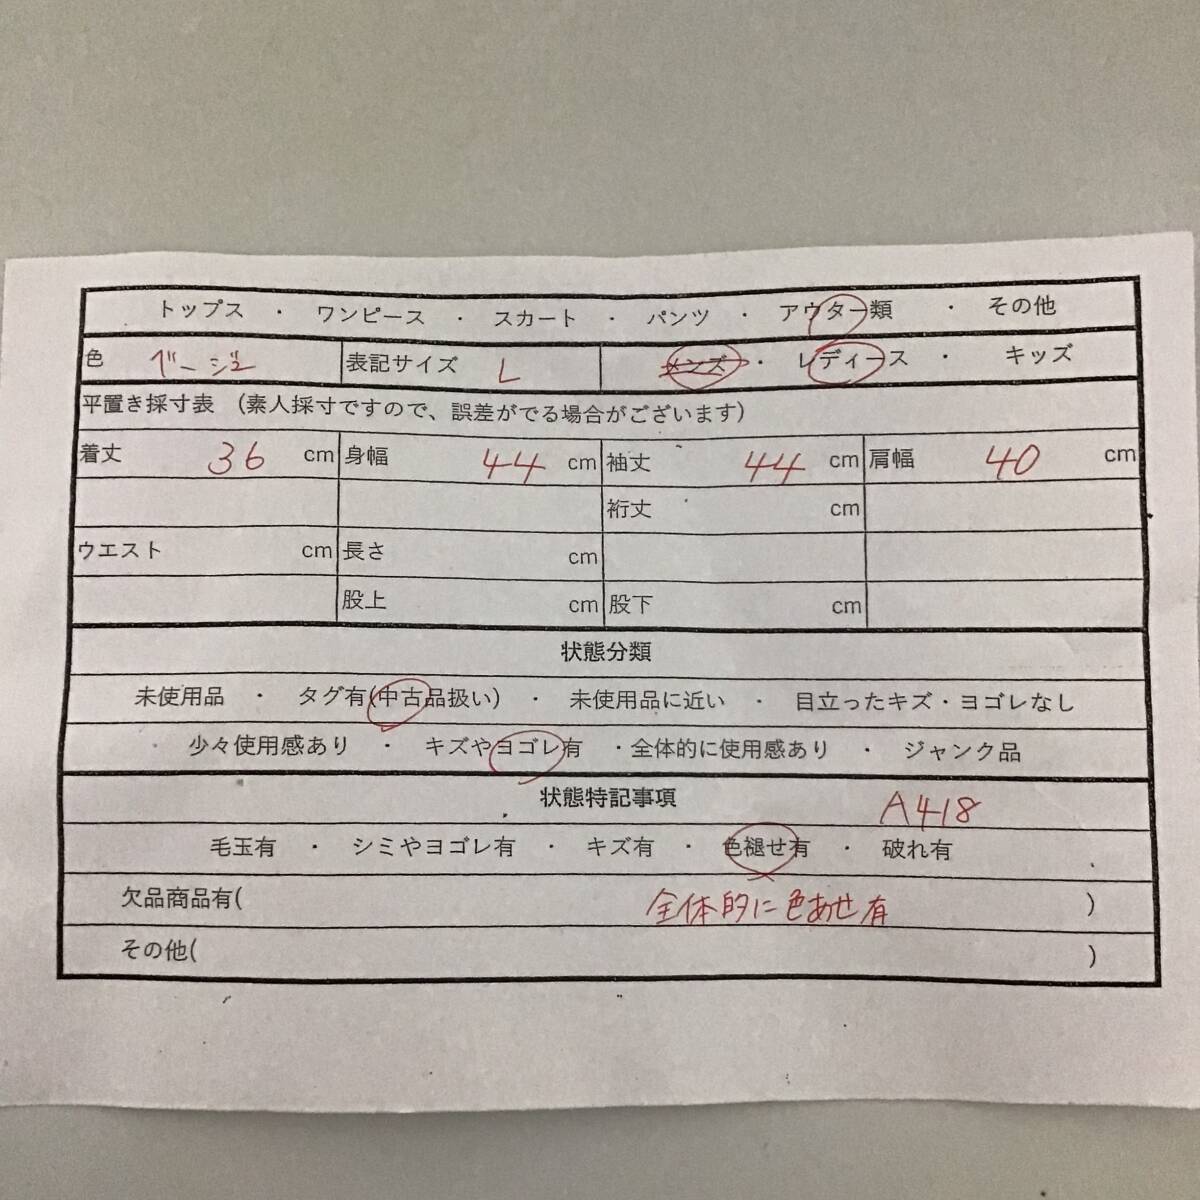 トップス ・ ワンピース ・ スカート ・ パンツ ・ アウター類 ・ その他
色 ベージュ 表記サイズ L メンズ ・ レディース ・ キッズ
平置き採寸表 (素人採寸ですので、誤差がでる場合がございます)
着丈 36 cm 身幅 44 cm 袖丈 44 cm 肩幅 40 cm
裄丈 cm
ウエスト cm 長さ cm
股上 cm 股下 cm
状態分類
未使用品 ・ タグ有(中古品扱い) ・ 未使用品に近い ・ 目立ったキズ・ヨゴレなし
少々使用感あり ・ キズやヨゴレ有 ・全体的に使用感あり ・ ジャンク品
状態特記事項 A418
毛玉有 ・ シミやヨゴレ有 ・ キズ有 ・ 色褪せ有 ・ 破れ有
欠品商品有( 全体的に色あせ有 )
その他( )